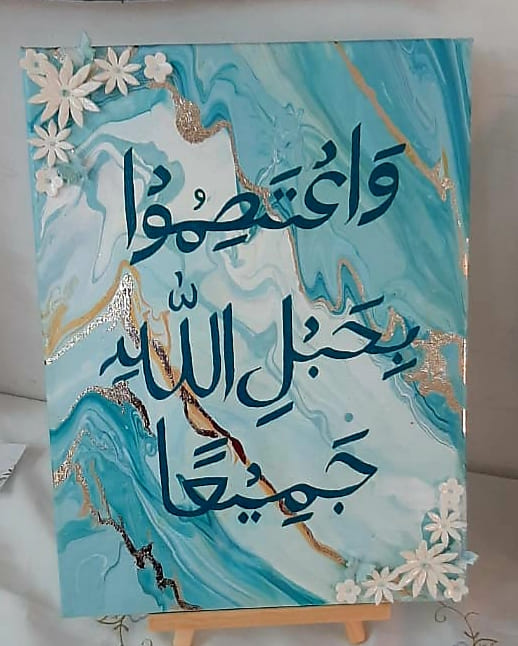 وَاعْتَصِمُوْا
بِحَبْلِ اللّٰهِ
جَمِيْعًا